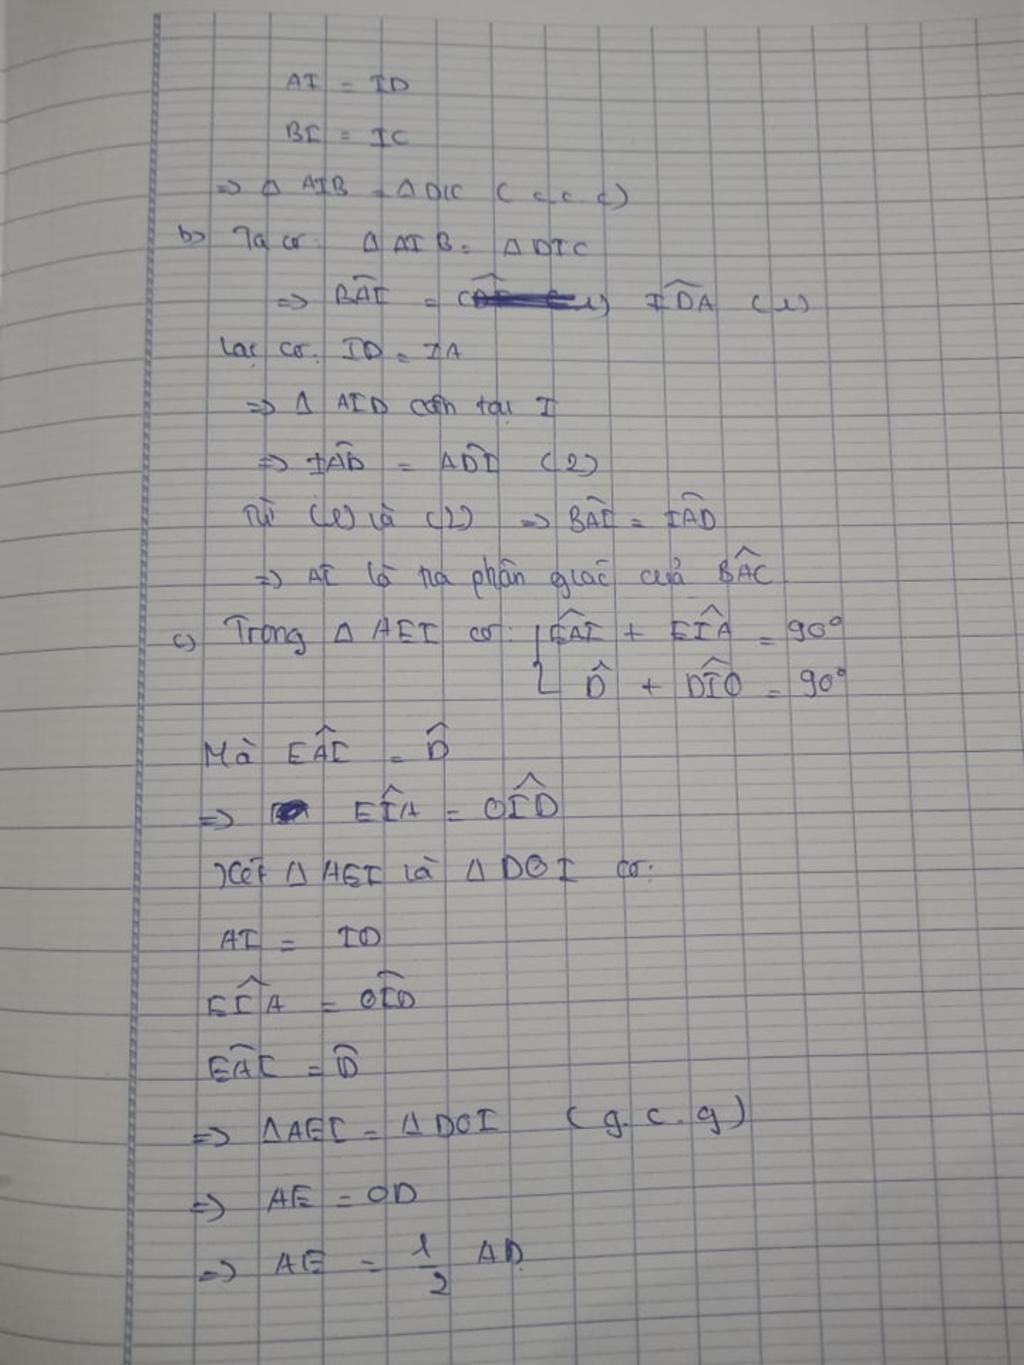 AI = ID
BI = IC
=> Δ AIB = Δ DIC (c.c.c)
b) Ta có: Δ AIB = Δ DIC
=> BAI^ = IDA^ (1)
Lại có: ID = IA
=> Δ AID cân tại I
=> IAD^ = ADI^ (2)
Từ (1) và (2) => BAI^ = IAD^
=> AI là tia phân giác của BAC^
c) Trong Δ AEI có: { EAI^ + EIA^ = 90°
D^ + DIO^ = 90°
Mà EAI^ = D^
=> EIA^ = OID^
Xét Δ AEI và Δ DOI có:
AI = ID
EIA^ = OID^
EAI^ = D^
=> Δ AEI = Δ DOI (g.c.g)
=> AE = OD
=> AE = 1/2 AD